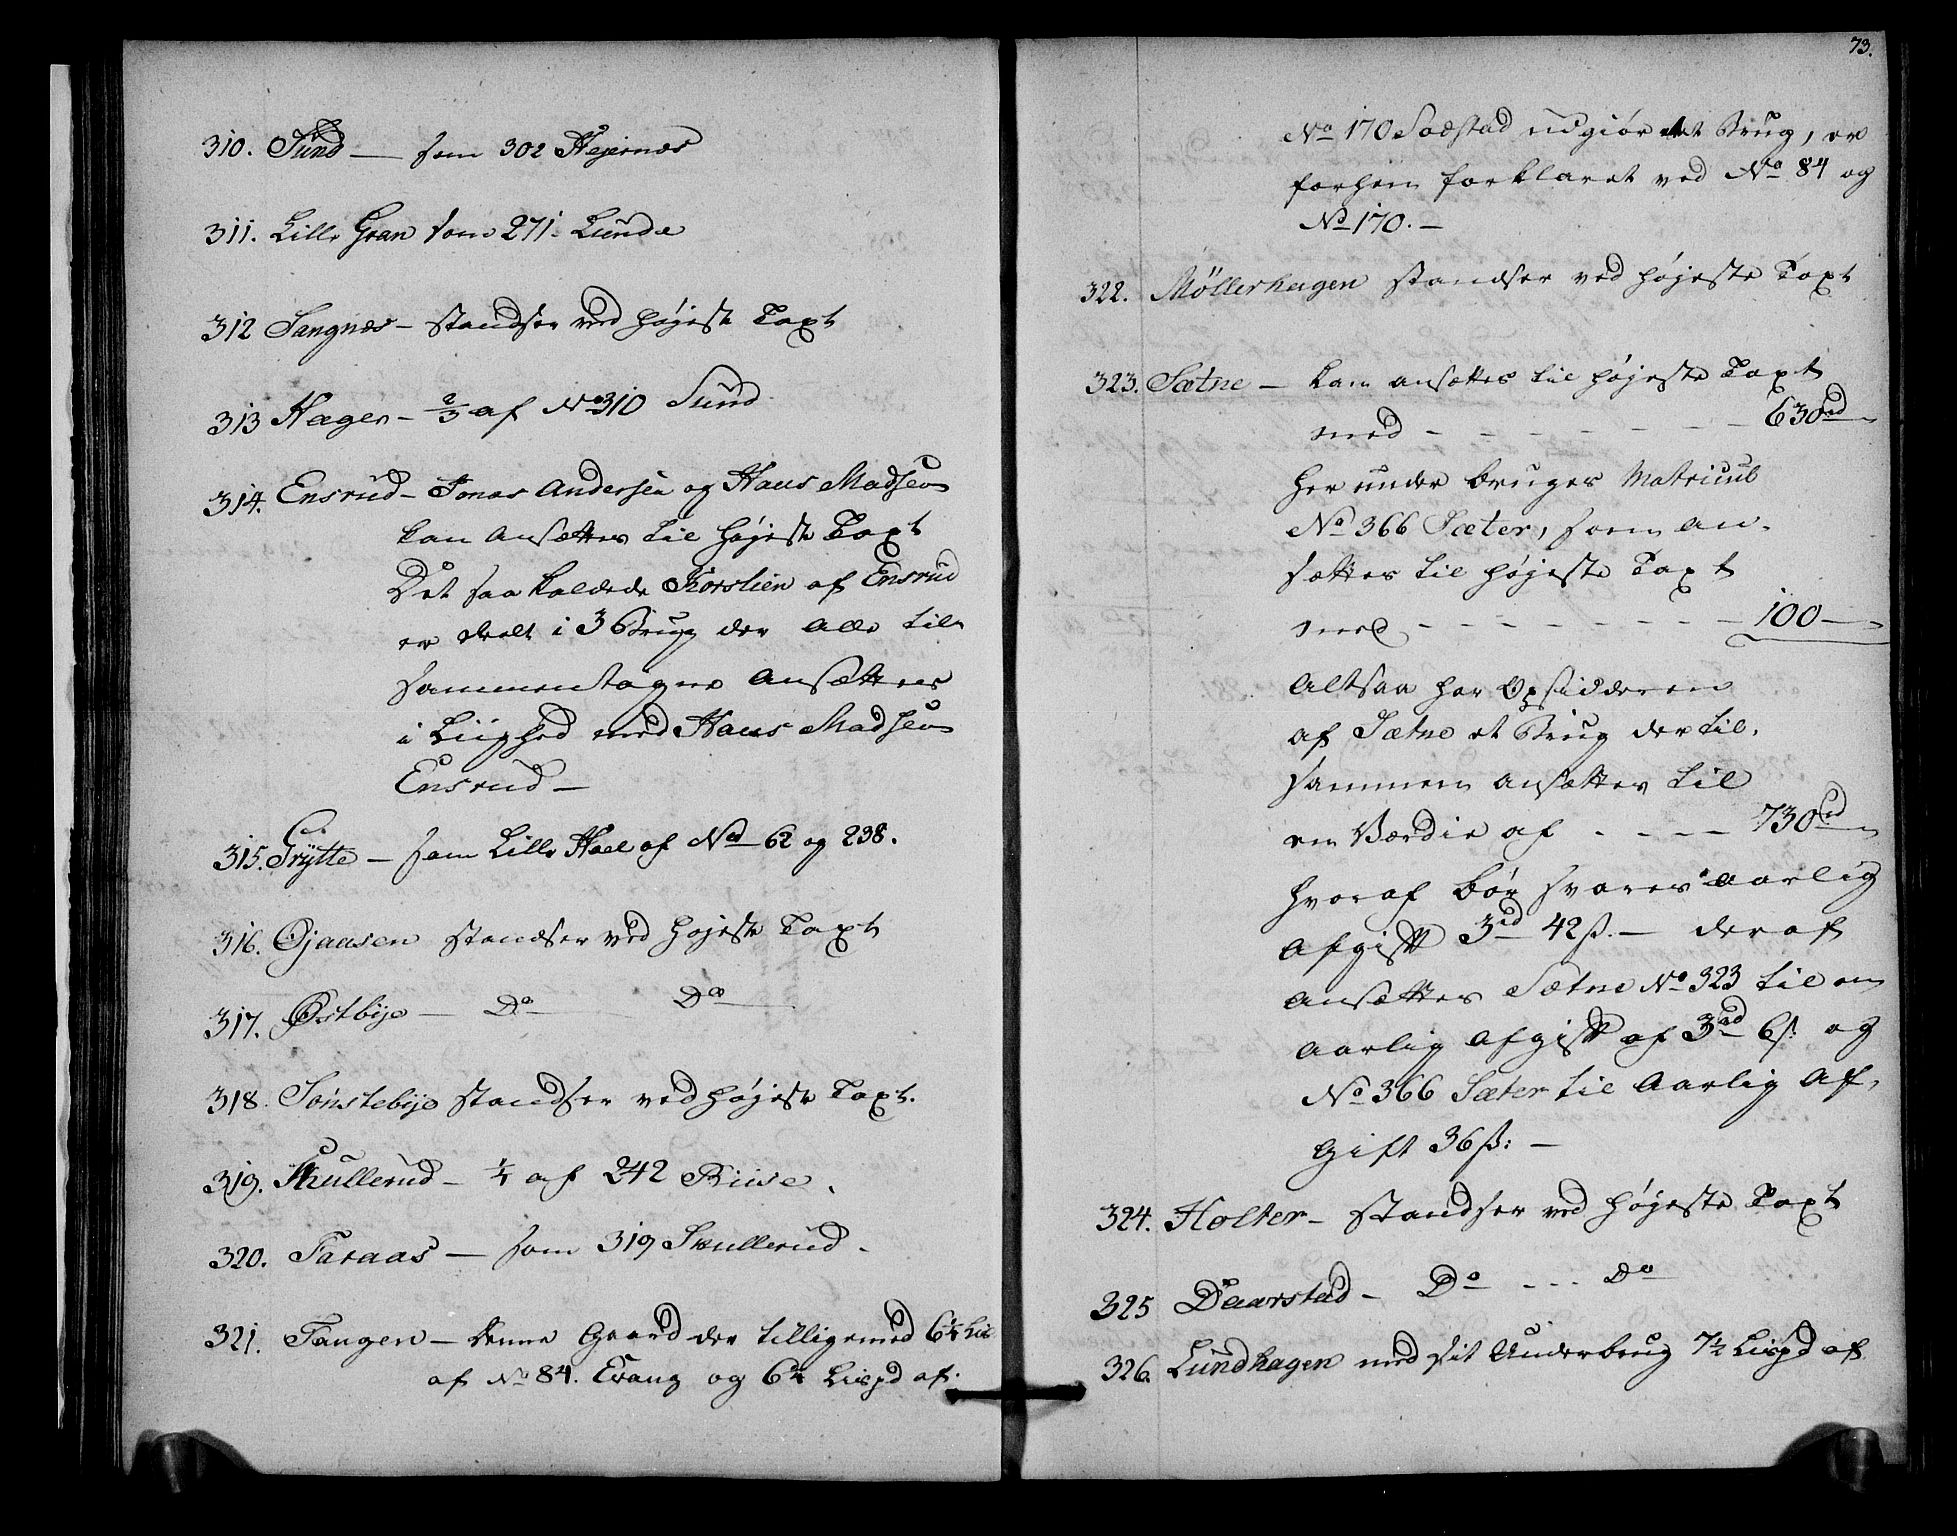 310. Sund — som 302 Hejernæs
311. Lille Gran som 271. Lunde
312 Sangnæs — standser ved højeste Taxt
313 Hagen — 2/3 af No 310 Sund
314. Ensrud — Jonas Andersen og Hans Madsen
kan ansættes til højeste Taxt
Det saa kaldede Korslien af Ensrud
er deelt i 3 Brug der alle til-
sammentagne ansættes
i Liighed med Hans Madsen
Ensrud —
315. Grytte — som Lille Hoel af No 62 og 238.
316. Ojaasen standser ved højeste Taxt
317. Østbye — Do Do
318. Sønstebye standser ved højeste Taxt.
319. Skullerud — 1/4 af 242 Riise.
320. Taraas — som 319 Skullerud.
321. Tangen — Denne Gaard der tilligemed 6 1/4 Lis
af No 84. Evang og 6 1/4 Lispd af
73.
No 170 Soestad udgiør et Brug, er
forhen forklaret ved No 84 og
No 170. —
322. Møllerhagen standser ved højeste Taxt
323. Sætne — kan ansættes til højeste Taxt
med - - - - - - - 630 rd
herunder bruges Matricul
No 366 Sæter, som an-
sættes til højeste Taxt
med - - - - - - - 100 —
Altsaa har Opsidderen
af Sætne et Brug der til-
sammen ansættes til
en Værdie af - - - - 730 rd
hvoraf bør svares aarlig
Afgift 3 rd 42 ß. — deraf
ansættes Sætne No 323 til en
aarlig Afgift af 3 rd 6 ß og
No 366 Sæter til aarlig Af-
gift 36 ß: —
324. Holter — standser ved højeste Taxt
325 Daarstad — Do - - - Do
326. Lundhagen med sit Underbrug 7 1/2 Lispd af